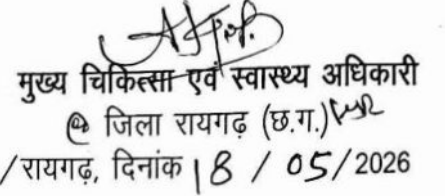 मुख्य चिकित्सा एवं स्वास्थ्य अधिकारी
जिला रायगढ़ (छ.ग.)
/रायगढ़, दिनांक 18 / 05/2026